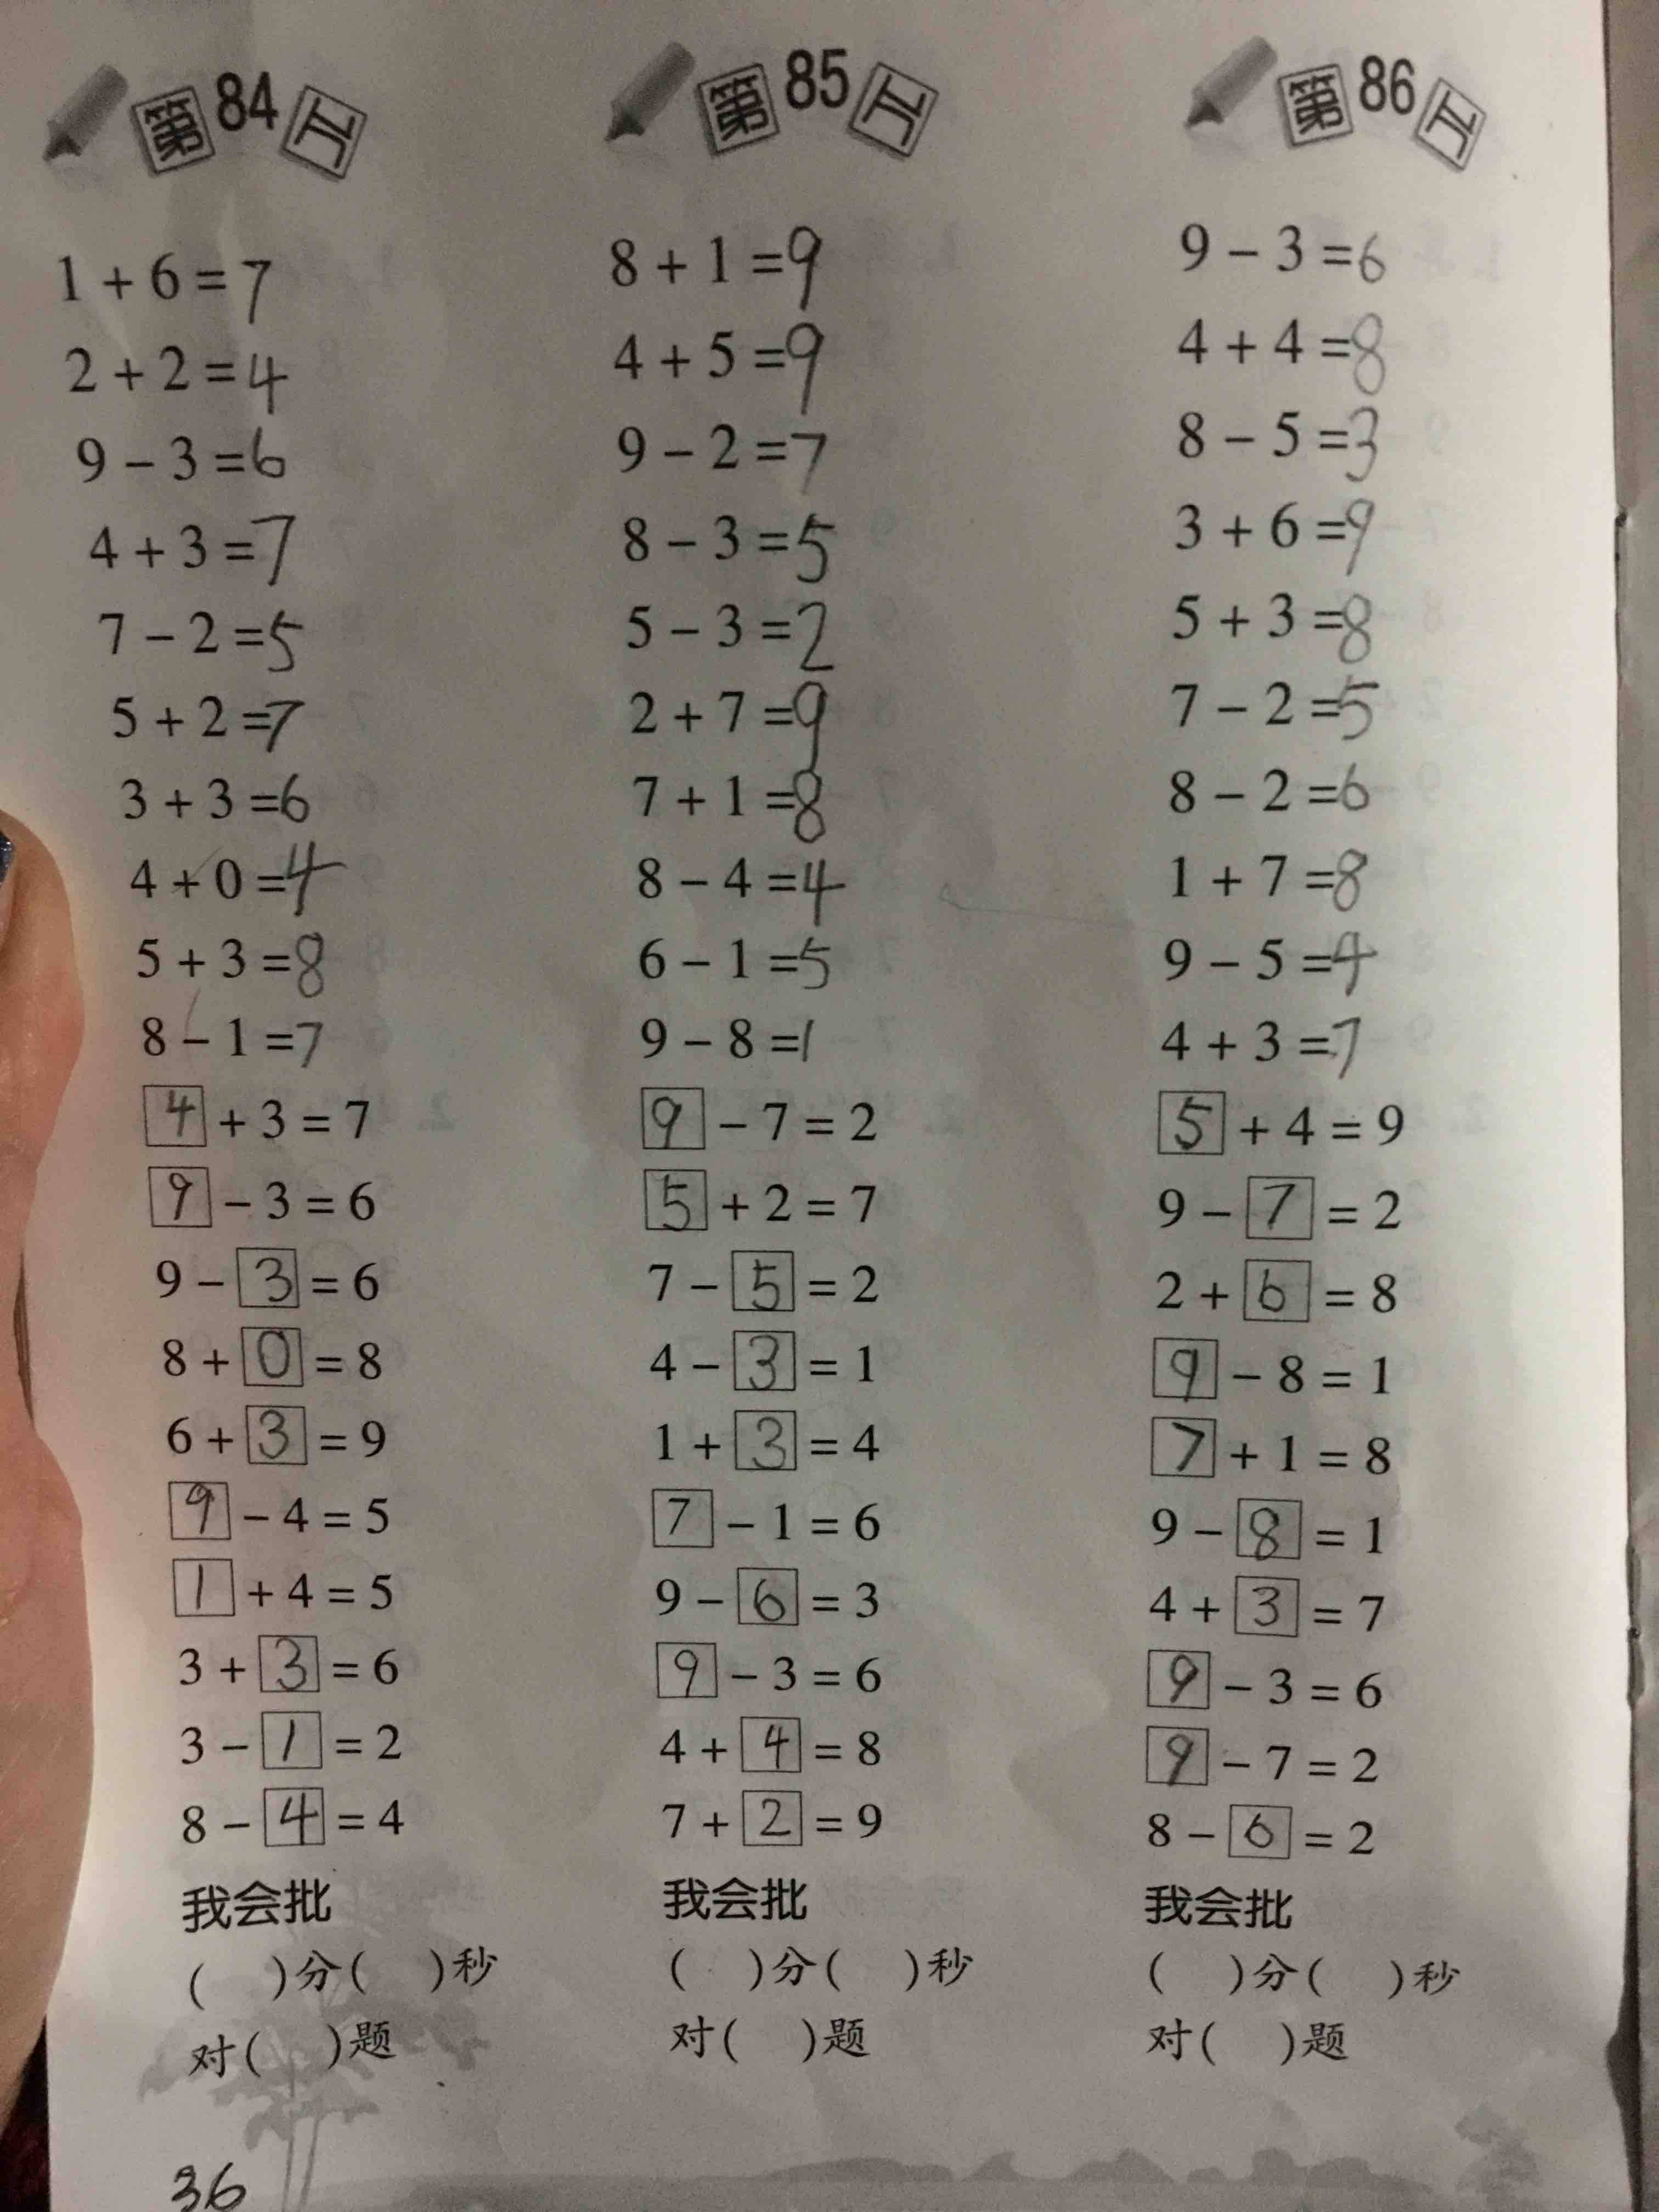 第84天
1 + 6 = 7
2 + 2 = 4
9 - 3 = 6
4 + 3 = 7
7 - 2 = 5
5 + 2 = 7
3 + 3 = 6
4 + 0 = 4
5 + 3 = 8
8 - 1 = 7
4 + 3 = 7
9 - 3 = 6
9 - 3 = 6
8 + 0 = 8
6 + 3 = 9
9 - 4 = 5
1 + 4 = 5
3 + 3 = 6
3 - 1 = 2
8 - 4 = 4
我会批
(  )分(  )秒
对(  )题
第85天
8 + 1 = 9
4 + 5 = 9
9 - 2 = 7
8 - 3 = 5
5 - 3 = 2
2 + 7 = 9
7 + 1 = 8
8 - 4 = 4
6 - 1 = 5
9 - 8 = 1
9 - 7 = 2
5 + 2 = 7
7 - 5 = 2
4 - 3 = 1
1 + 3 = 4
7 - 1 = 6
9 - 6 = 3
9 - 3 = 6
4 + 4 = 8
7 + 2 = 9
我会批
(  )分(  )秒
对(  )题
第86天
9 - 3 = 6
4 + 4 = 8
8 - 5 = 3
3 + 6 = 9
5 + 3 = 8
7 - 2 = 5
8 - 2 = 6
1 + 7 = 8
9 - 5 = 4
4 + 3 = 7
5 + 4 = 9
9 - 7 = 2
2 + 6 = 8
9 - 8 = 1
7 + 1 = 8
9 - 8 = 1
4 + 3 = 7
9 - 3 = 6
9 - 7 = 2
8 - 6 = 2
我会批
(  )分(  )秒
对(  )题
36